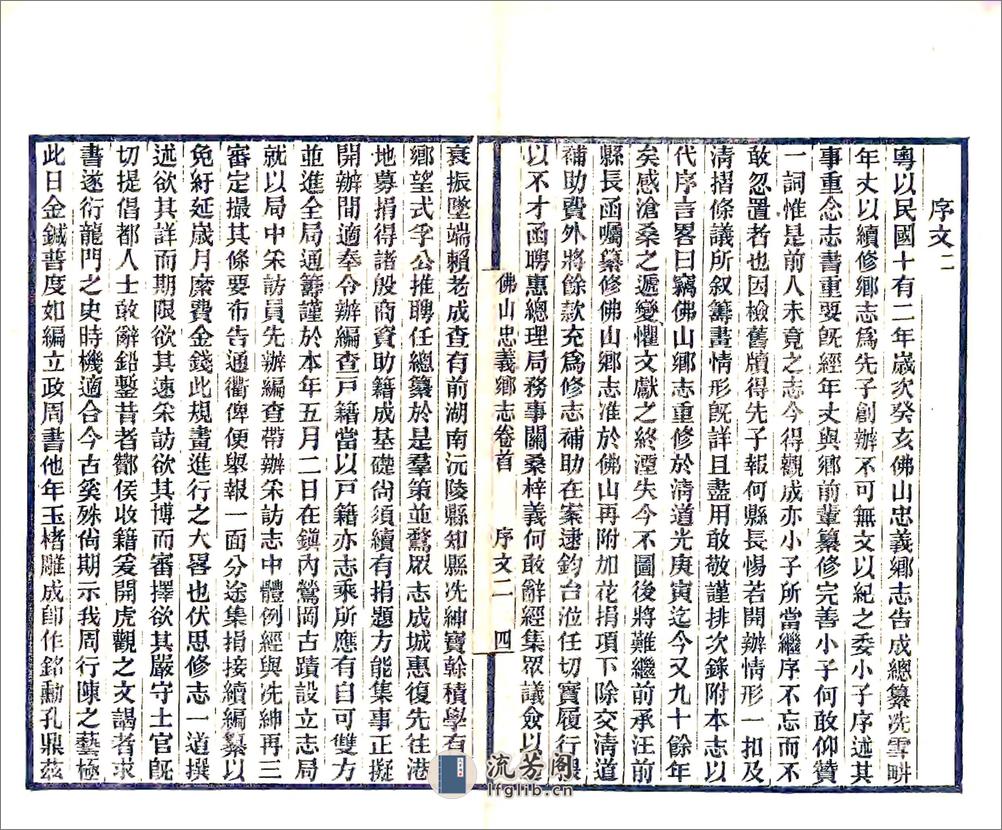 序文二
粵以民國十有二年歲次癸亥佛山忠義鄉志告成總纂冼雪畊
年丈以續修鄉志爲先子創辦不可無文以紀之委小子序述其
事重念志書重要旣經年丈與鄉前輩纂修完善小子何敢仰贊
一詞惟是前人未竟之志今得觀成亦小子所當繼序不忘而不
敢忽置者也因檢舊牘得先子報何縣長惕若開辦情形一扣及
清摺條議所叙籌畫情形旣詳且盡用敢敬謹排次錄附本志以
代序言畧曰竊佛山鄉志重修於清道光庚寅迄今又九十餘年
矣感滄桑之遞變懼文獻之終湮失今不圖後將難繼前承汪前
縣長函囑纂修佛山鄉志准於佛山再附加花捐項下除交清道
補助費外將餘款充爲修志補助在案逮鈞台涖任切實履行復
以不才函聘惠總理局務事關桑梓義何敢辭經集眾議僉以
佛山忠義鄉志卷首
序文二
四
衰振墜端賴老成查有前湖南沅陵縣知縣冼紳寶榦積學有
鄉望式孚公推聘任總纂於是羣策並騖眾志成城惠復先往港
地募捐得諸殷商資助籍成基礎尙須續有捐題方能集事正擬
開辦間適奉令辦編查戸籍當以戸籍亦志乘所應有自可雙方
並進全局通籌謹於本年五月二日在鎭內鶯岡古蹟設立志局
就以局中采訪員先辦編查帶辦采訪志中體例經與冼紳再三
審定撮其條要布告通衢俾便舉報一面分途集捐接續編纂以
免紆延歲月糜費金錢此規畫進行之大畧也伏思修志一道撰
述欲其詳而期限欲其速采訪欲其博而審擇欲其嚴守土官旣
切提倡都人士敢辭鉛鏨昔者酇侯收籍爰開虎觀之文謁者求
書遂衍龍門之史時機適合今古奚殊尙期示我周行陳之藝極
此日金鍼普度如編立政周書他年玉楮雕成卽作銘勳孔鼎茲
流芳阁
lfglib.cn